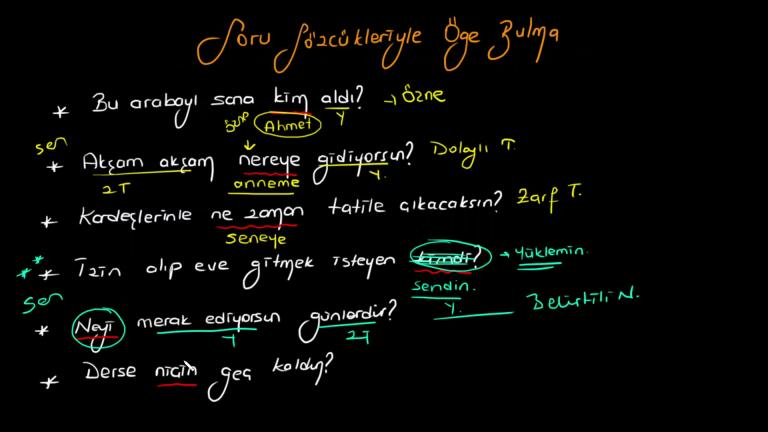 Soru Sözcükleriyle Öge Bulma
* Bu arabayı sana kim aldı? → Özne
Ahmet Y
sen
* Akşam akşam nereye gidiyorsun? Dolaylı T.
ZT anneme Y.
* Kardeşlerinle ne zaman tatile çıkacaksın? Zarf T.
seneye
* İzin alıp eve gitmek isteyen kimdi? → Yüklemin.
sendin.
Y.
sen
* Neyi merak ediyorsun günlerdir? Belirtili N.
Y ZT
* Derse niçin geç kaldın?